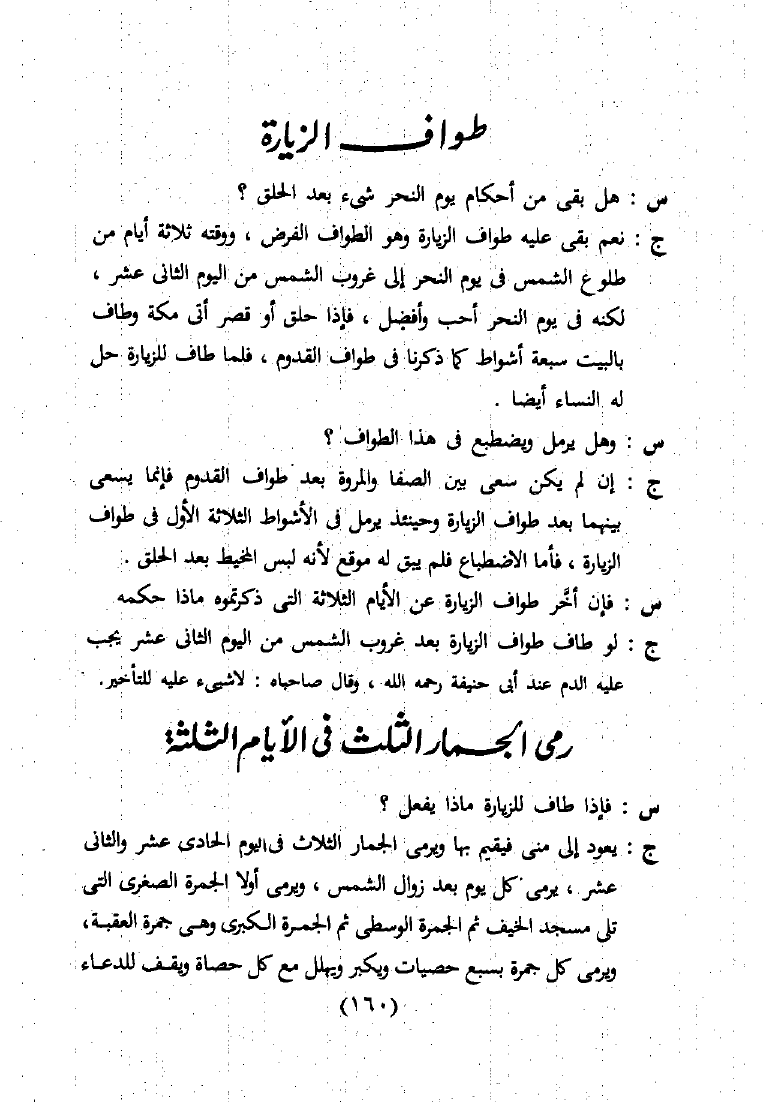 طواف الزيارة
س : هل بقى من أحكام يوم النحر شىء بعد الحلق ؟
ج : نعم بقى عليه طواف الزيارة وهو الطواف الفرض ، ووقته ثلاثة أيام من
طلوع الشمس فى يوم النحر إلى غروب الشمس من اليوم الثانى عشر ،
لكنه فى يوم النحر أحب وأفضل ، فإذا حلق أو قصر أتى مكة وطاف
بالبيت سبعة أشواط كما ذكرنا فى طواف القدوم ، فلما طاف للزيارة حل
له النساء أيضا .
س : وهل يرمل ويضطبع فى هذا الطواف ؟
ج : إن لم يكن سعى بين الصفا والمروة بعد طواف القدوم فإنما يسعى
بينهما بعد طواف الزيارة وحينئذ يرمل فى الأشواط الثلاثة الأول فى طواف
الزيارة ، فأما الاضطباع فلم يبق له موقع لأنه لبس المخيط بعد الحلق .
س : فإن أخَّر طواف الزيارة عن الأيام الثلاثة التى ذكرتموه ماذا حكمه
ج : لو طاف طواف الزيارة بعد غروب الشمس من اليوم الثانى عشر يجب
عليه الدم عند أبى حنيفة رحمه الله ، وقال صاحباه : لاشيىء عليه للتأخير.
رمى الجمار الثلث فى الأيام الثلثة
س : فإذا طاف للزيارة ماذا يفعل ؟
ج : يعود إلى منى فيقيم بها ويرمى الجمار الثلاث فى اليوم الحادى عشر والثانى
عشر ، يرمى كل يوم بعد زوال الشمس ، ويرمى أولا الجمرة الصغرى التى
تلى مسجد الخيف ثم الجمرة الوسطى ثم الجمرة الكبرى وهى جمرة العقبة،
ويرمى كل جمرة بسبع حصيات ويكبر ويهلل مع كل حصاة ويقف للدعاء
(١٦٠)